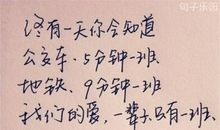 句子乐团
终有一天你会知道
公交车、5分钟一班
地铁、9分钟一班
我们的爱，一辈只有一班.